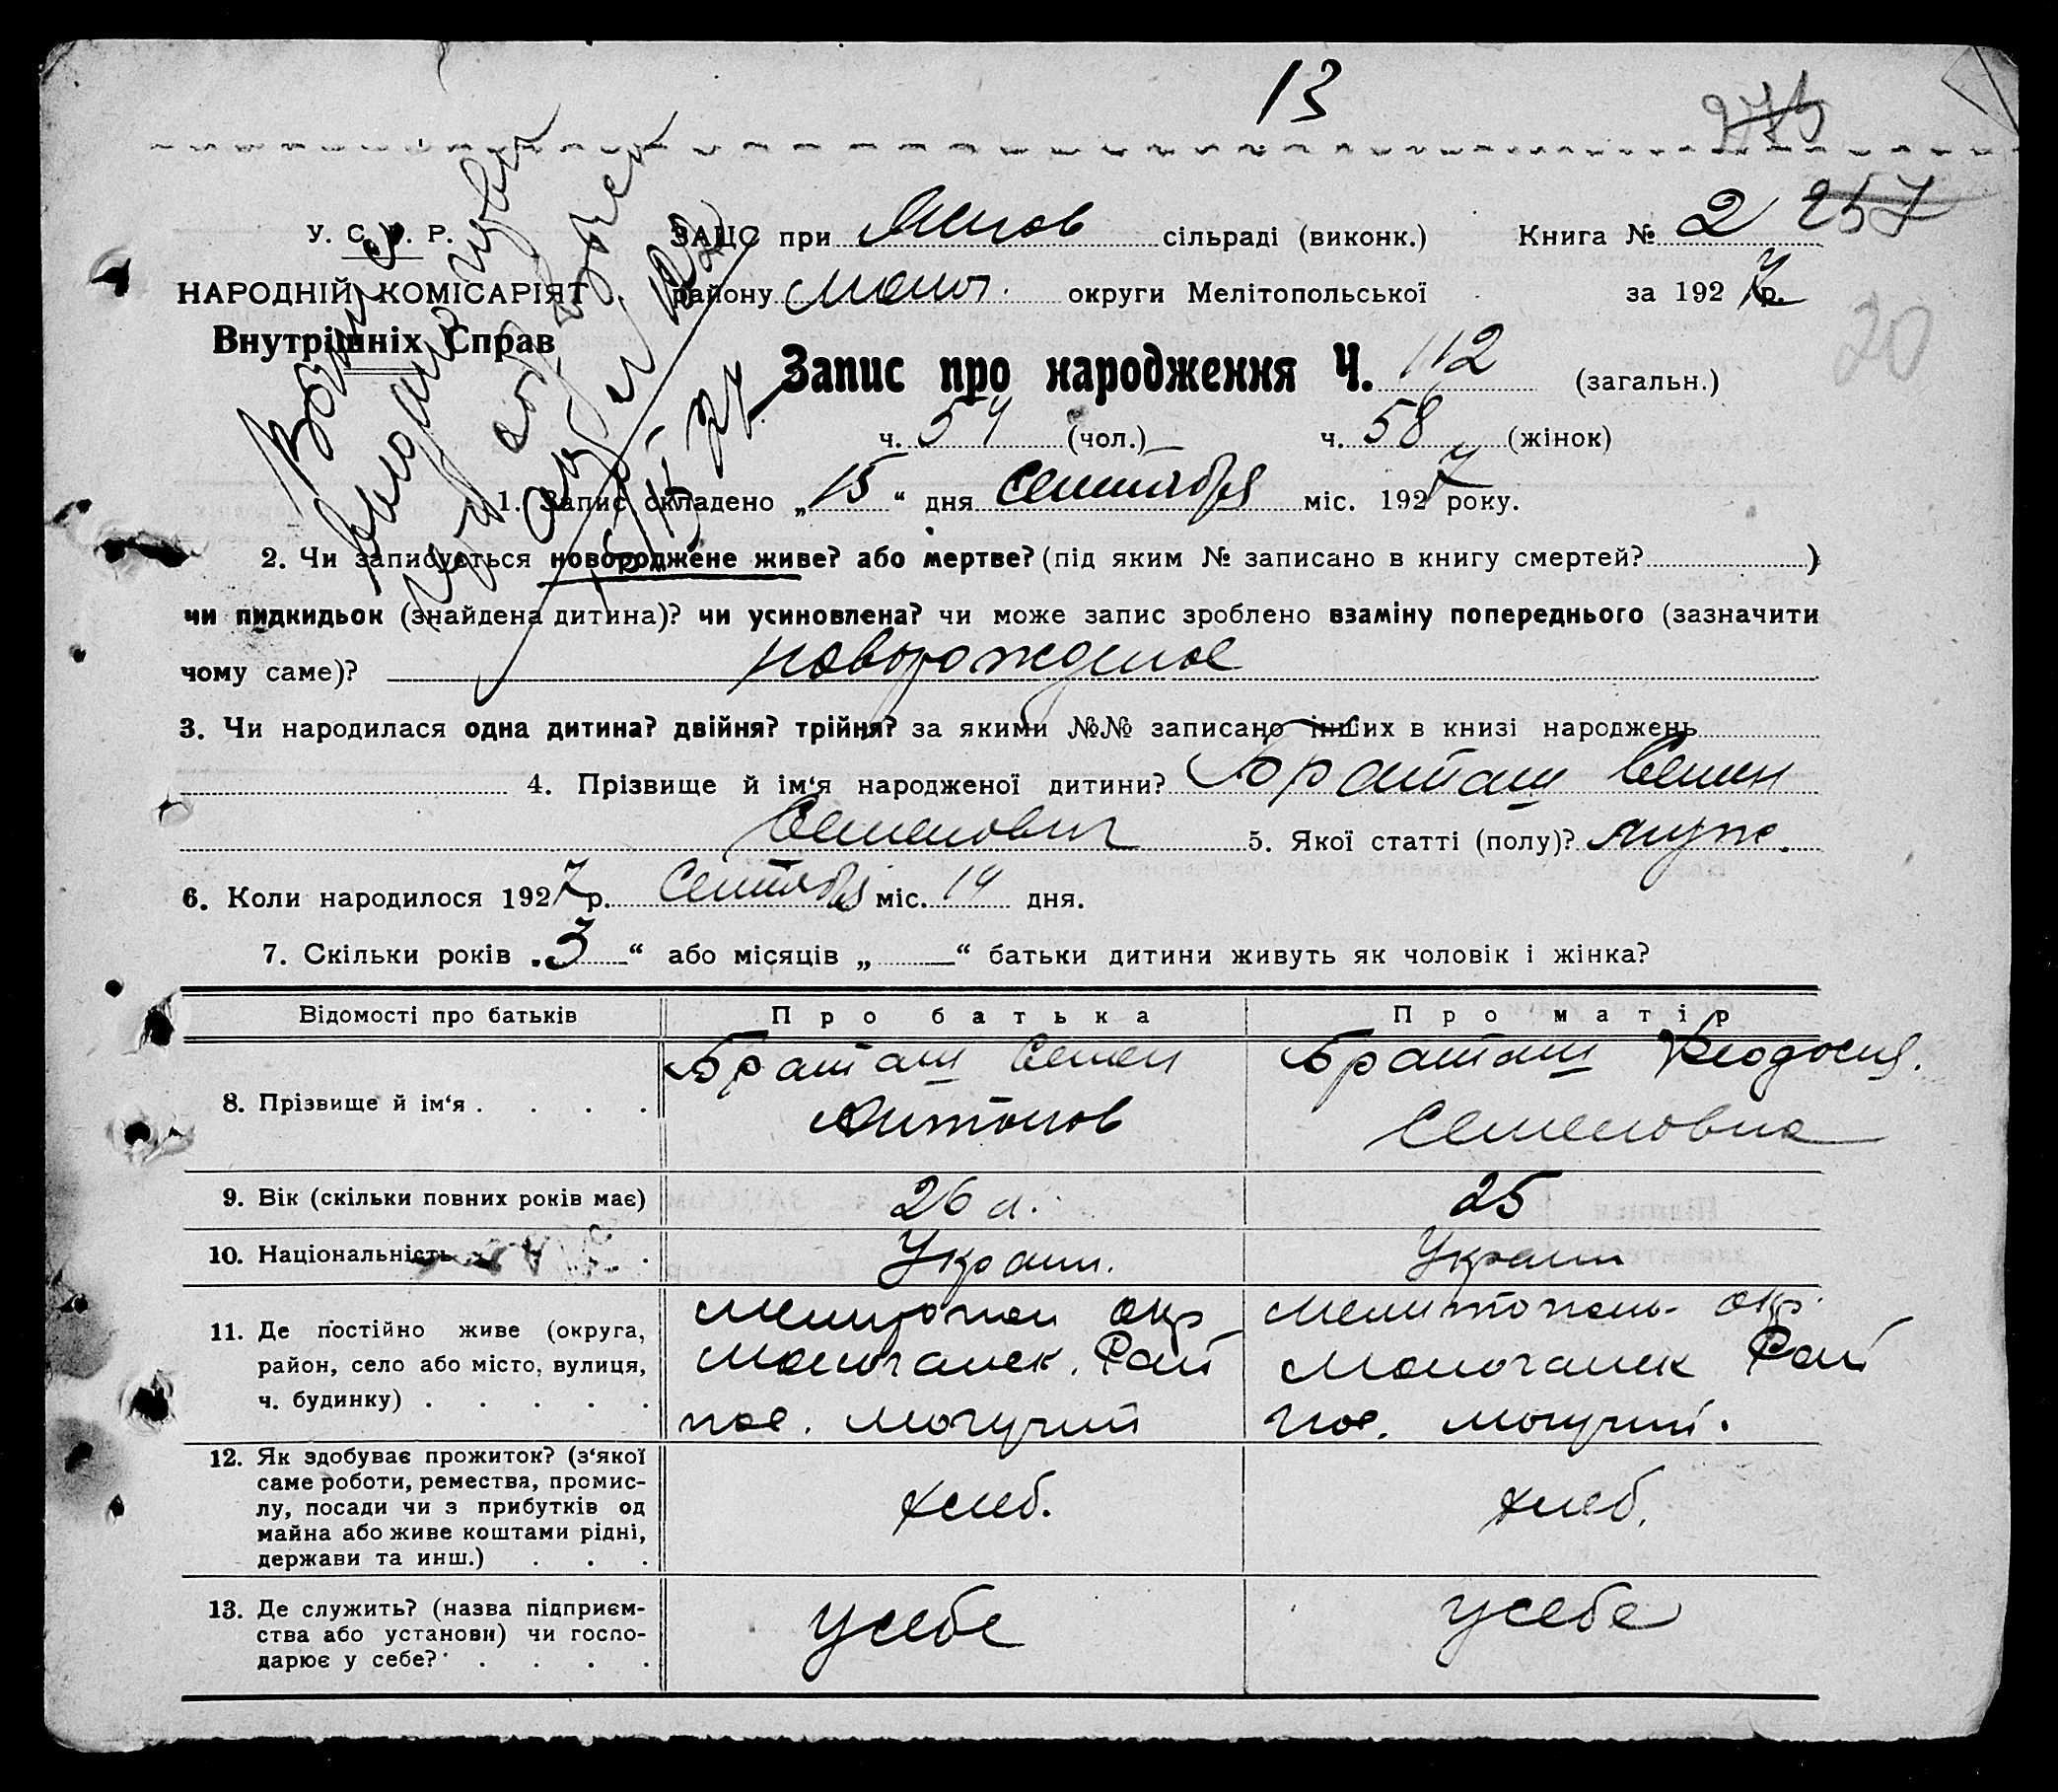 13
275
У. С. Р. Р.
ЗАЦС при сільраді (виконк.) Книга № 2 257
НАРОДНІЙ КОМІСАРІЯТ
району Молоч. округи Мелітопольської за 1927 р.
Внутрішніх Справ
20
Запис про народження Ч. 112 (загальн.)
ч. 54 (чол.) ч. 58 (жінок)
1. Запис складено „15“ дня Сентября міс. 1927 року.
2. Чи записується новороджене живе? або мертве? (під яким № записано в книгу смертей? )
чи пидкидьок (знайдена дитина)? чи усиновлена? чи може запис зроблено взаміну попереднього (зазначити
чому саме)? новорожденое
3. Чи народилася одна дитина? двійня? трійня? за якими №№ записано інших в книзі народжень
4. Прізвище й ім‘я народженої дитини? Браташ Семен
Семенович 5. Якої статті (полу)? муж.
6. Коли народилося 1927 р. Сентября міс. 14 дня.
7. Скільки років „3“ або місяців „—“ батьки дитини живуть як чоловік і жінка?
Відомості про батьків Про батька Про матір
8. Прізвище й ім‘я . . . . Браташ Семен Браташ Феодосия.
Антонов Семеновна
9. Вік (скільки повних років має) 26 л. 25
10. Національність Украин. Украин
11. Де постійно живе (округа, район, село або місто, вулиця, ч. будинку) . . . . .
Мелитопол окр Мелитополь. окр.
Молочанск. Рай Молочанск Рай
пос. Могучий пос. Могучий.
12. Як здобуває прожиток? (з‘якої
саме роботи, ремества, промис-
лу, посади чи з прибутків од
майна або живе коштами рідні,
держави та инш.) . . .
хлеб. хлеб.
13. Де служить? (назва підприєм-
ства або установи) чи госпо-
дарює у себе? . . . .
усебе усебе